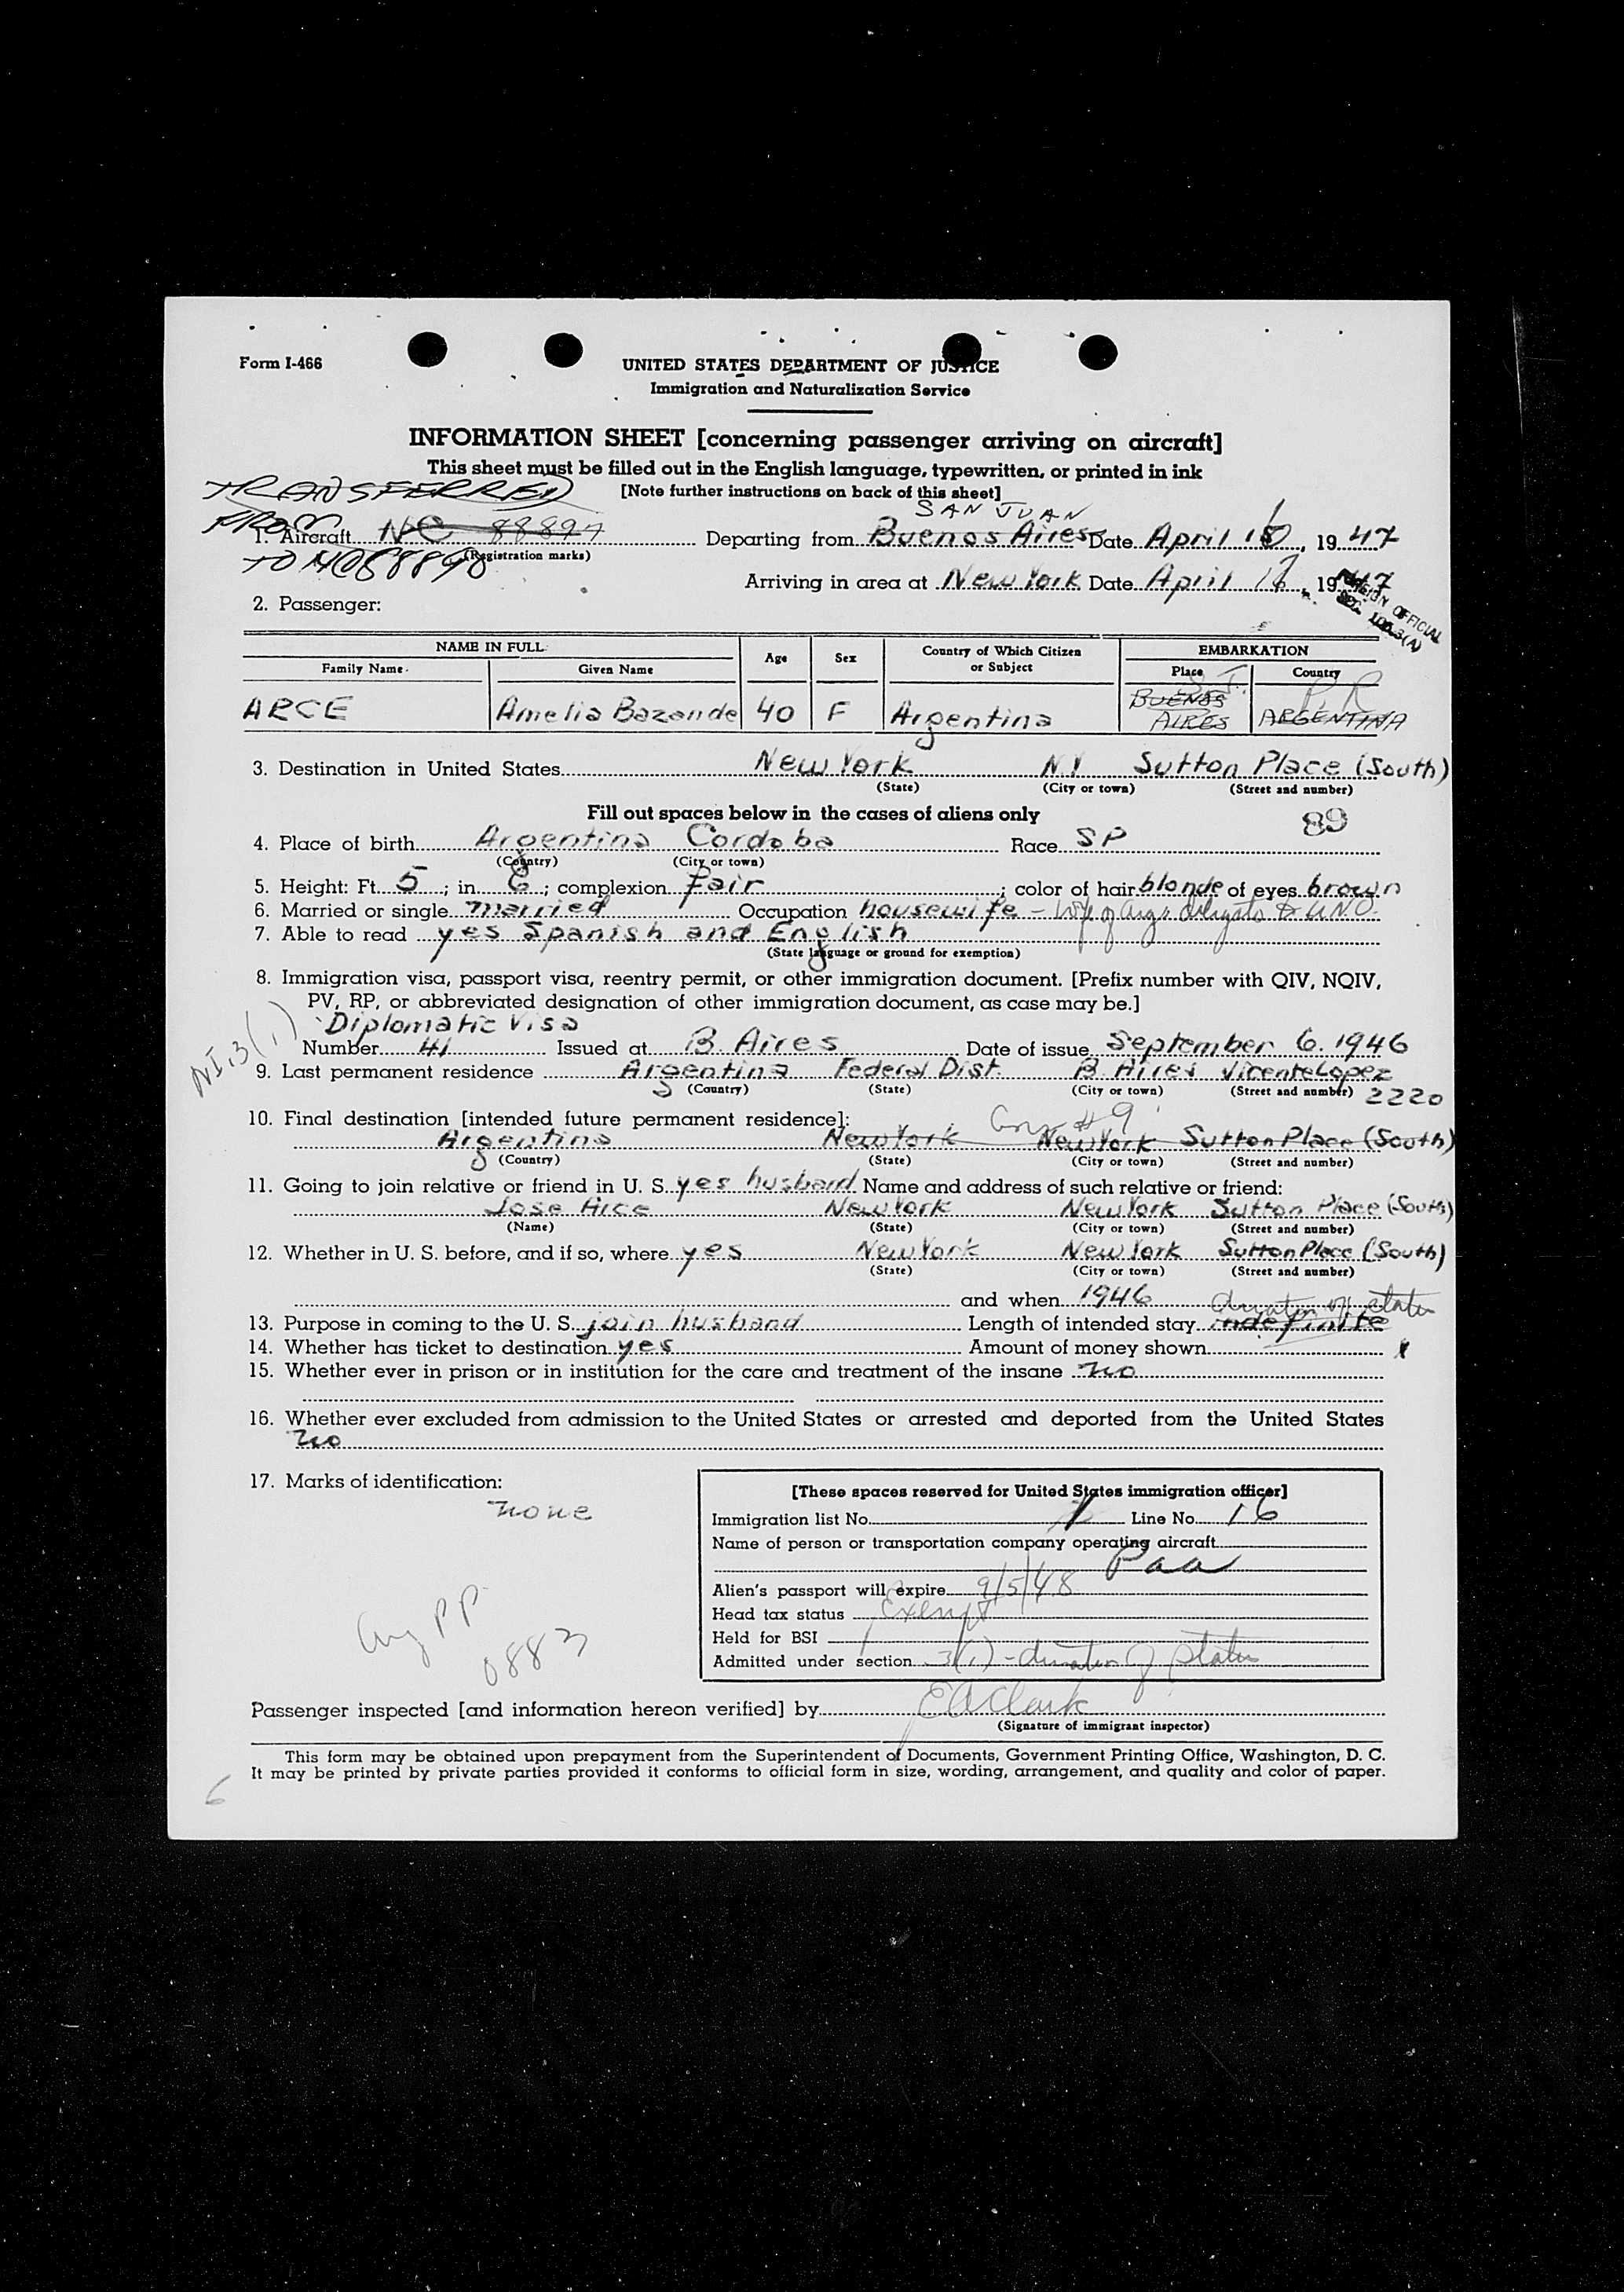 Form I-466
UNITED STATES DEPARTMENT OF JUSTICE
Immigration and Naturalization Service
INFORMATION SHEET [concerning passenger arriving on aircraft]
This sheet must be filled out in the English language, typewritten, or printed in ink
TRANSFERRED [Note further instructions on back of this sheet]
SAN JUAN
FROM
1. Aircraft NC 88897 Departing from Buenos Aires Date April 1947
(Registration marks)
TO
Arriving in area at New York Date April 1947
FOREIGN OFFICIAL
SEC. (A)
2. Passenger:
NAME IN FULL Age Sex Country of Which Citizen or Subject EMBARKATION
Family Name Given Name Place Country
S.J. P.R
ARCE Amelia Bazan de 40 F Argentina BUENOS AIRES ARGENTINA
3. Destination in United States New York N.Y Sutton Place (South)
(State) (City or town) (Street and number)
Fill out spaces below in the cases of aliens only 89
4. Place of birth Argentina Cordoba Race SP
(Country) (City or town)
5. Height: Ft. 5; in. 6; complexion fair; color of hair blonde of eyes brown
6. Married or single married Occupation housewife - Wife of Arg. delegate to UNO.
7. Able to read yes Spanish and English
(State language or ground for exemption)
8. Immigration visa, passport visa, reentry permit, or other immigration document. [Prefix number with QIV, NQIV,
PV, RP, or abbreviated designation of other immigration document, as case may be.]
Diplomatic Visa
Number 41 Issued at B. Aires Date of issue September 6. 1946
9. Last permanent residence Argentina Federal Dist. B. Aires Vicente Lopez
(Country) (State) (City or town) (Street and number) 2220
10. Final destination [intended future permanent residence]: #9
Argentina New York New York Sutton Place (South)
(Country) (State) (City or town) (Street and number)
11. Going to join relative or friend in U. S. yes husband Name and address of such relative or friend:
Jose Arce New York New York Sutton Place (South)
(Name) (State) (City or town) (Street and number)
12. Whether in U. S. before, and if so, where yes New York New York Sutton Place (South)
(State) (City or town) (Street and number)
and when 1946 duration of status
13. Purpose in coming to the U. S. join husband Length of intended stay indefinite
14. Whether has ticket to destination yes Amount of money shown
15. Whether ever in prison or in institution for the care and treatment of the insane no
16. Whether ever excluded from admission to the United States or arrested and deported from the United States
no
17. Marks of identification:
none
[These spaces reserved for United States immigration officer]
Immigration list No. 1 Line No. 16
Name of person or transportation company operating aircraft
Paa
Alien's passport will expire 9/5/48
Head tax status Exempt
Held for BSI
Admitted under section 3(1) - duration of status
Arg PP
0883
Passenger inspected [and information hereon verified] by E A Clark
(Signature of immigrant inspector)
This form may be obtained upon prepayment from the Superintendent of Documents, Government Printing Office, Washington, D. C.
It may be printed by private parties provided it conforms to official form in size, wording, arrangement, and quality and color of paper.
6